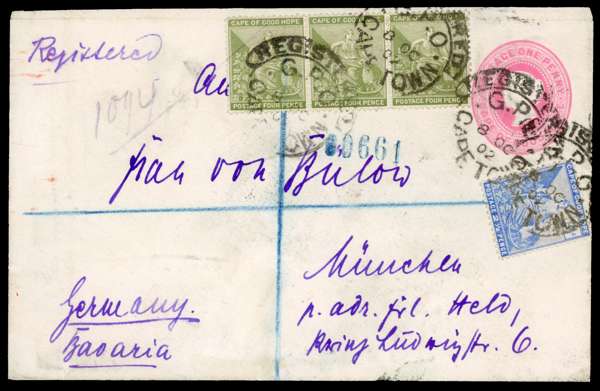 Registered
1094
An
CAPE OF GOOD HOPE CAPE OF GOOD HOPE CAPE OF GOOD HOPE
POSTAGE FOUR PENCE POSTAGE FOUR PENCE POSTAGE FOUR PENCE
POSTAGE ONE PENNY
REGISTERED
G.P.O.
CAPE TOWN
8 OC
02
00661
Frau von Bülow
POSTAGE 2½ PENCE
München
p. adr. Frl. Held,
Prinz Ludwigstr. 6.
Germany.
Bavaria